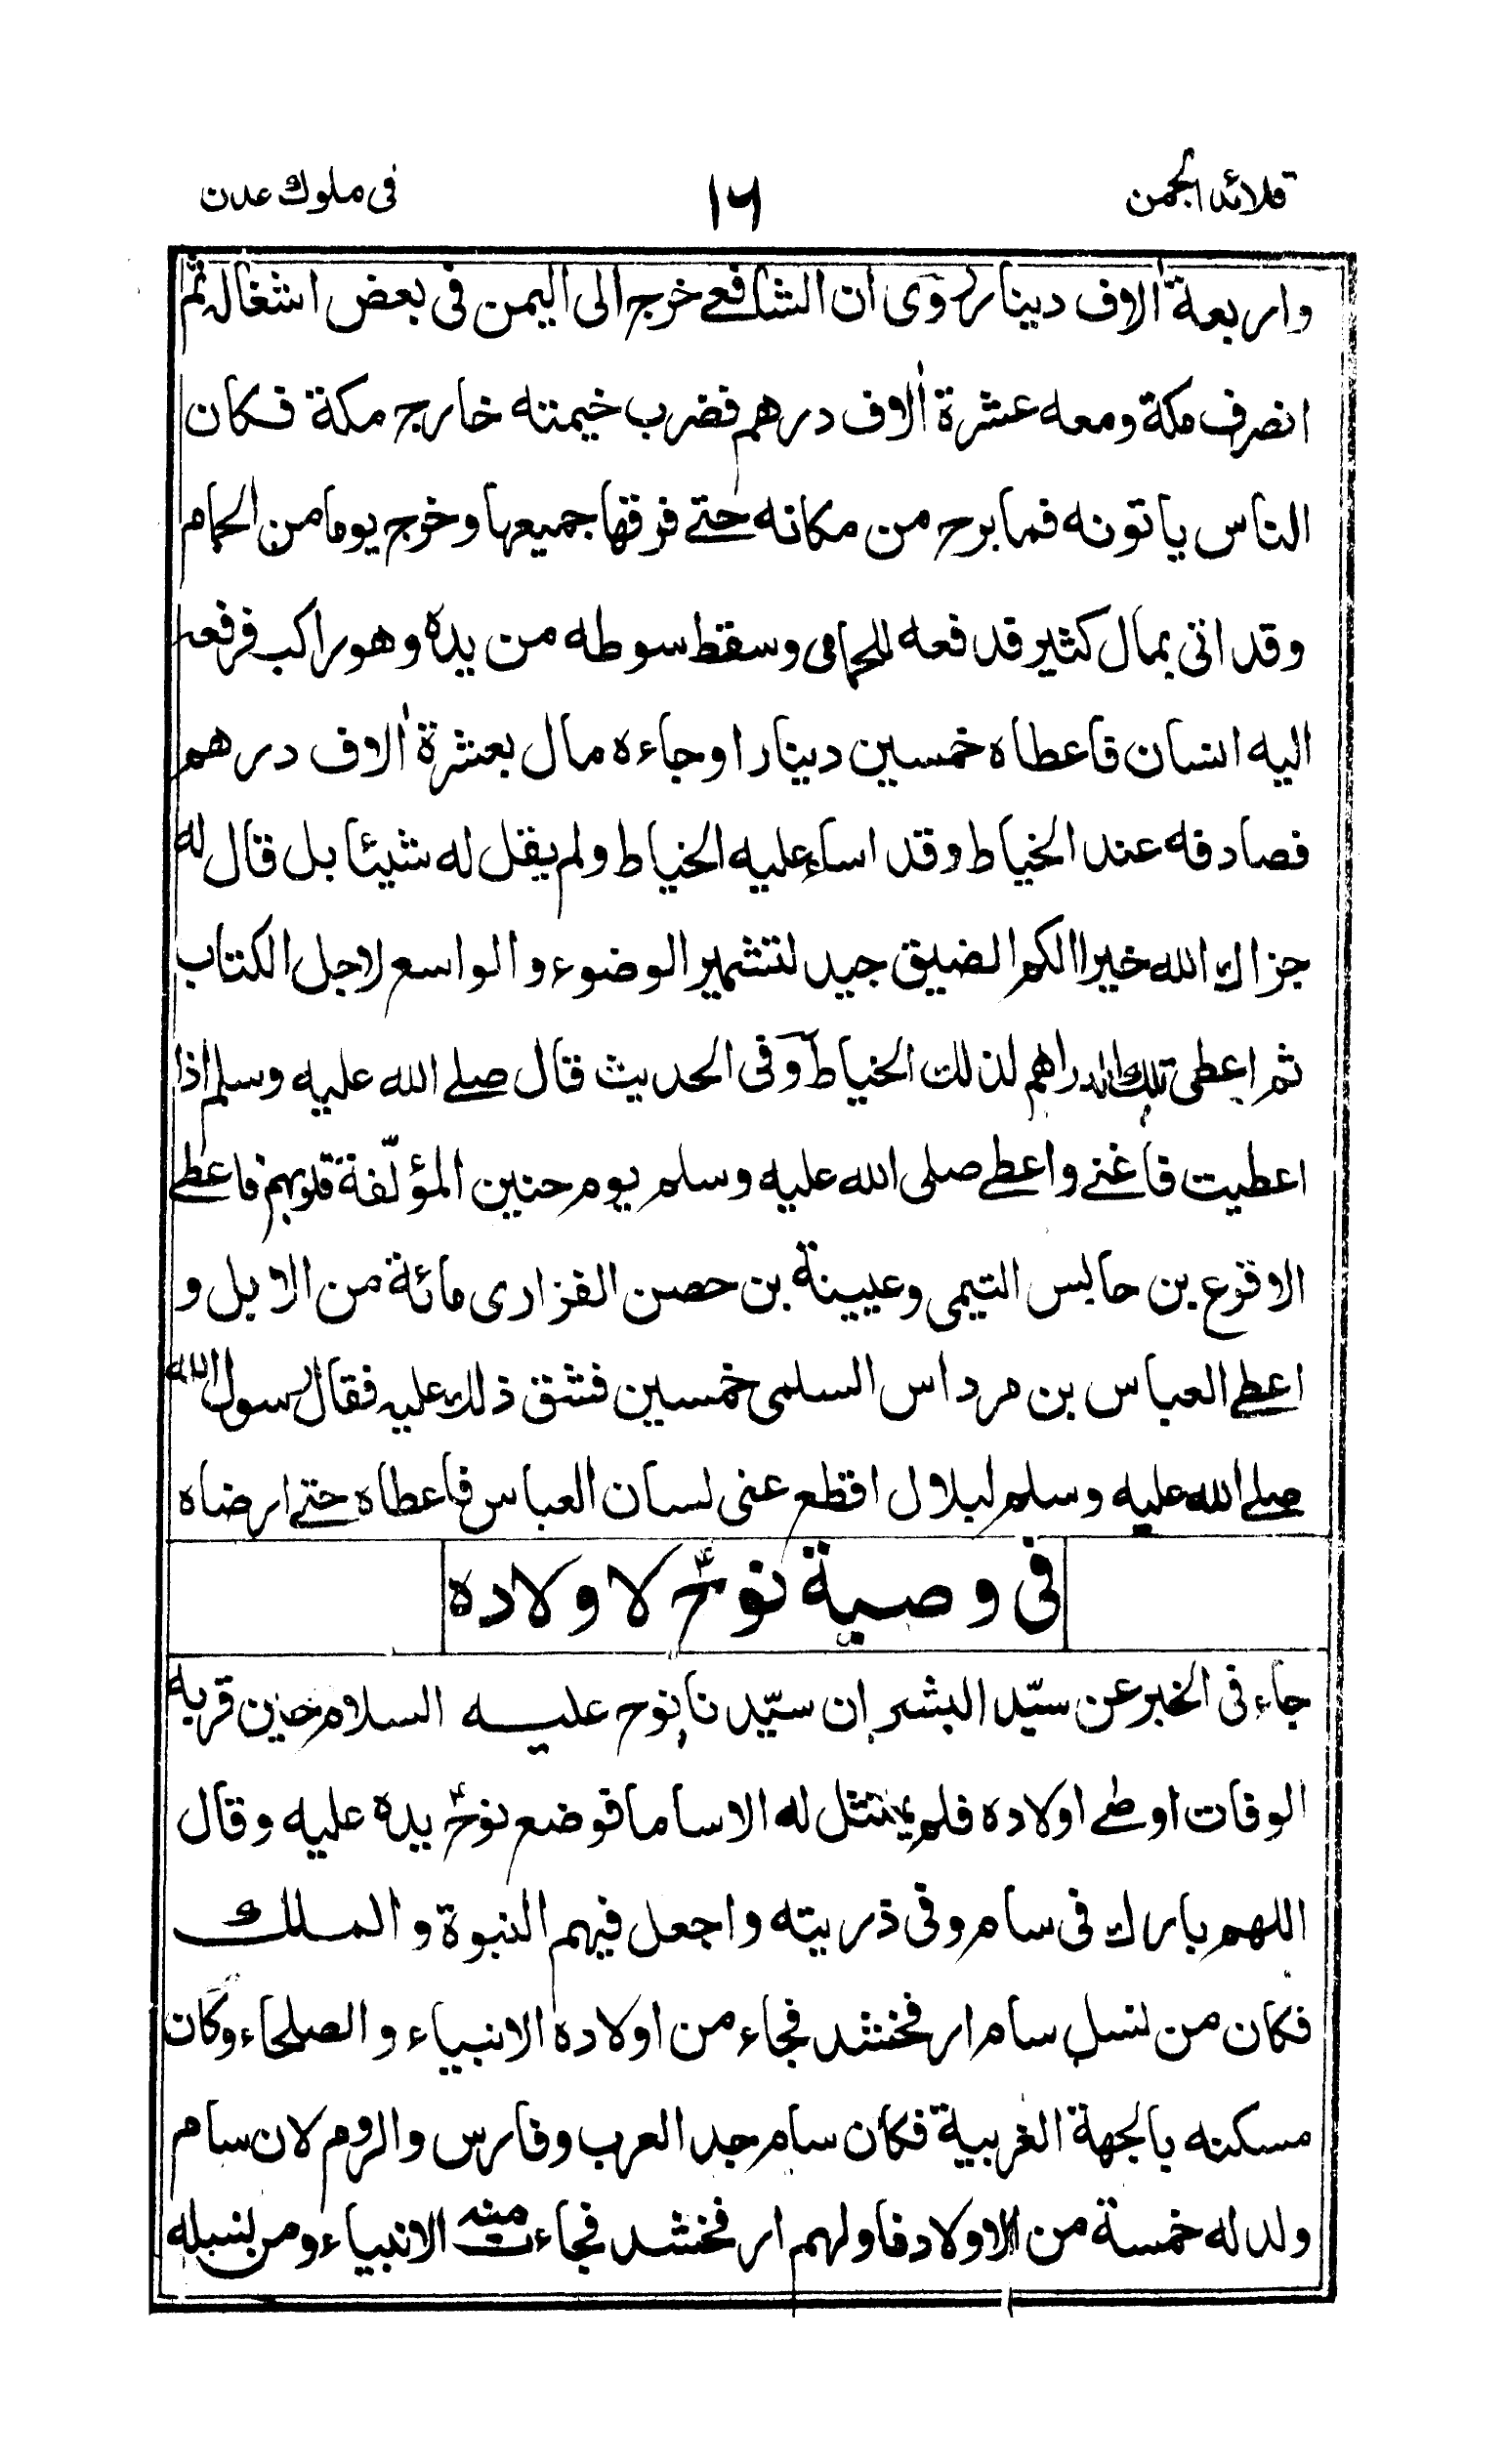 قلائد الجمن ١٦ فی ملوك عدن
واربعة اٰلاف دینار روی ان الشافعے خرج الی الیمن فی بعض اشغاله ثمّ
انصرف مکة ومعه عشرة اٰلاف درهم فضرب خیمته خارج مکة فکان
الناس یاتونه فما برح من مکانه حتے فرقها جمیعها وخرج یوما من الحمام
وقد اتی بمال کثیر قد فعه للحمامی وسقط سوطه من یده وهو راکب فرفعه
الیه انسان فاعطاه خمسین دینارا وجاءه مال بعشرة اٰلاف درهم
فصادفه عند الخیاط وقد اساء علیه الخیاط ولم یقل له شیئا بل قال له
جزاك الله خیرا الکم الضیق جید لتشمیر الوضوء والواسع لاجل الکتاب
ثم اعطی تلك الدراهم لذلك الخیاط وفی الحدیث قال صلے الله علیه وسلم اذا
اعطیت فاغنے واعطے صلی الله علیه وسلم یوم حنین المؤلّفة قلوبهم فاعطے
الاقوع بن حابس التیمی وعیینة بن حصن الفزاری مائة من الابل و
اعطے العباس بن مرداس السلمی خمسین فشق ذلك علیه فقال رسول الله
صلے الله علیه وسلم لبلال اقطع عنی لسان العباس فاعطاه حتے ارضاه
فی وصیة نوحؑ لاولاده
جاء فی الخبر عن سیّد البشر ان سیّدنا نوح علیه السلام حین قربه
الوفات اوطے اولاده فلم یمتثل له الاساما فوضع نوحؑ یده علیه وقال
اللهم بارك فی سام وفی ذریته واجعل فیهم النبوة والملك
فکان من نسل سام ارفخشد فجاء من اولاده الانبیاء والصلحاء وکان
مسکنه بالجهة الغربیة فکان سام جد العرب وفارس والروم لان سام
ولد له خمسة من الاولاد فاولهم ارفخشد فجاءت منه الانبیاء ومن نسله